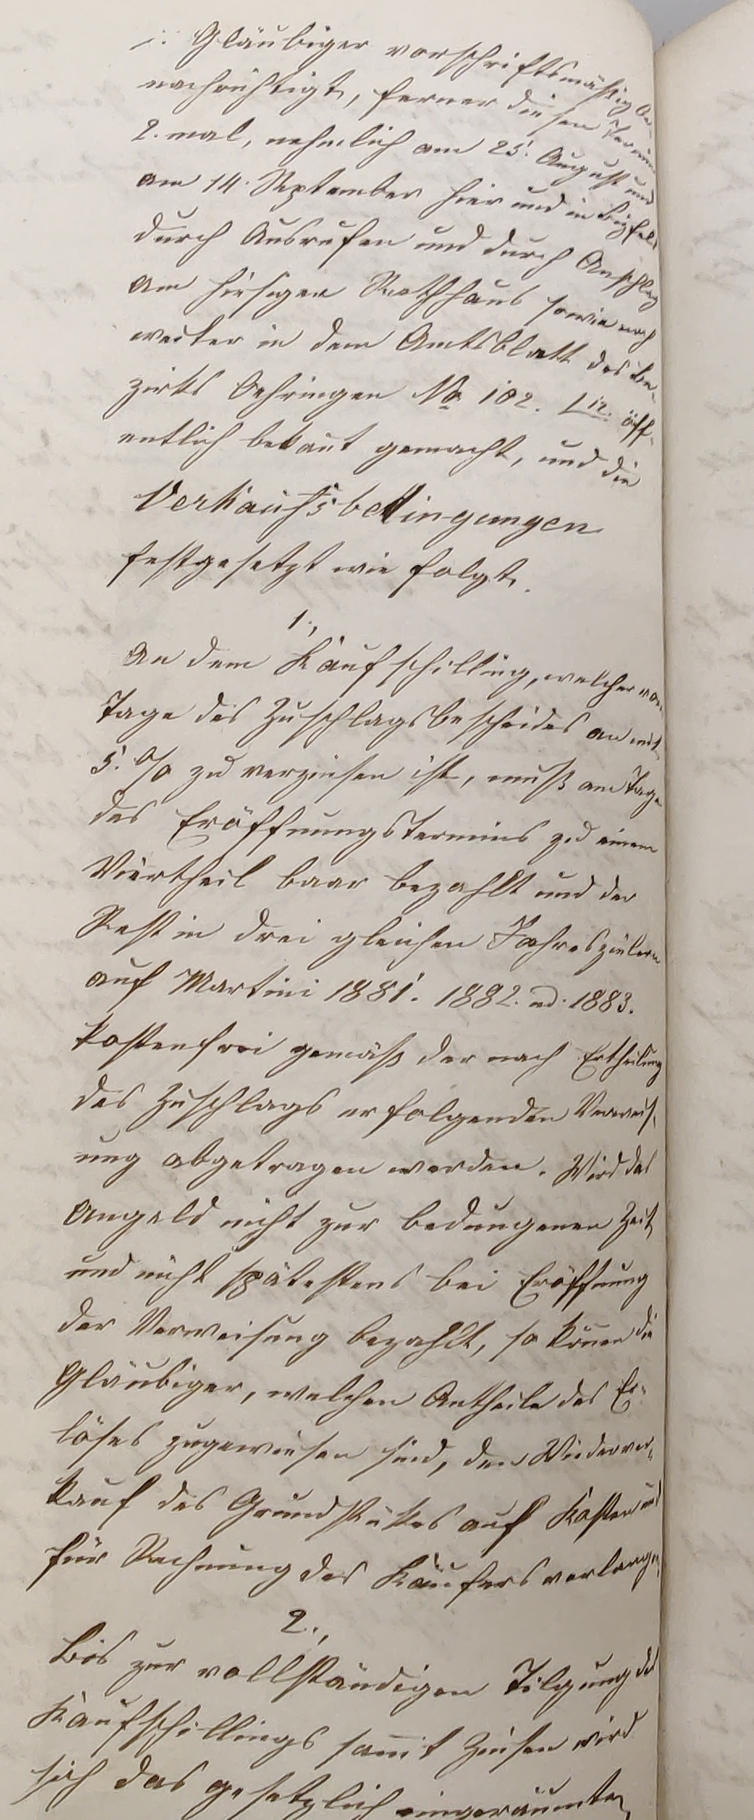 Gläubiger vorschriftsmäßig be-
nachrichtigt, ferner diesen Termin
2. mal, nehmlich am 25. August und
am 14. September hier und in
durch Ausrufen und durch Anschlag
am hiesigen Rathhaus sowie noch
weiter in dem Amtsblatt des Be-
zirks Oehringen No 102. öff-
entlich bekant gemacht, und die
Verkaufsbedingungen
festgesetzt wie folgt.
1.,
An dem Kaufschilling, welcher vom
Tage des Zuschlagsbescheides an mit
5. % zu verzinsen ist, muß am Tage
des Eröffnungstermins zu einem
Viertheil baar bezahlt und der
Rest in drei gleichen Jahreszielern
auf Martini 1881. 1882. ud. 1883.
kostenfrei gemäß der nach Ertheilung
des Zuschlags erfolgenden Verweis-
ung abgetragen werden. Wird das
Angeld nicht zur bedungenen Zeit
und nicht spätestens bei Eröffnung
der Verweisung bezahlt, so könen die
Gläubiger, welchen Antheile des Er-
löses zugewiesen sind, den Wiederver-
kauf des Grundstükes auf Kosten und
für Rechnung des Käufers verlangen
2.,
Bis zur vollständigen Tilgung des
Kaufschillings samt Zinsen wird
sich das gesetzlich eingeräumte